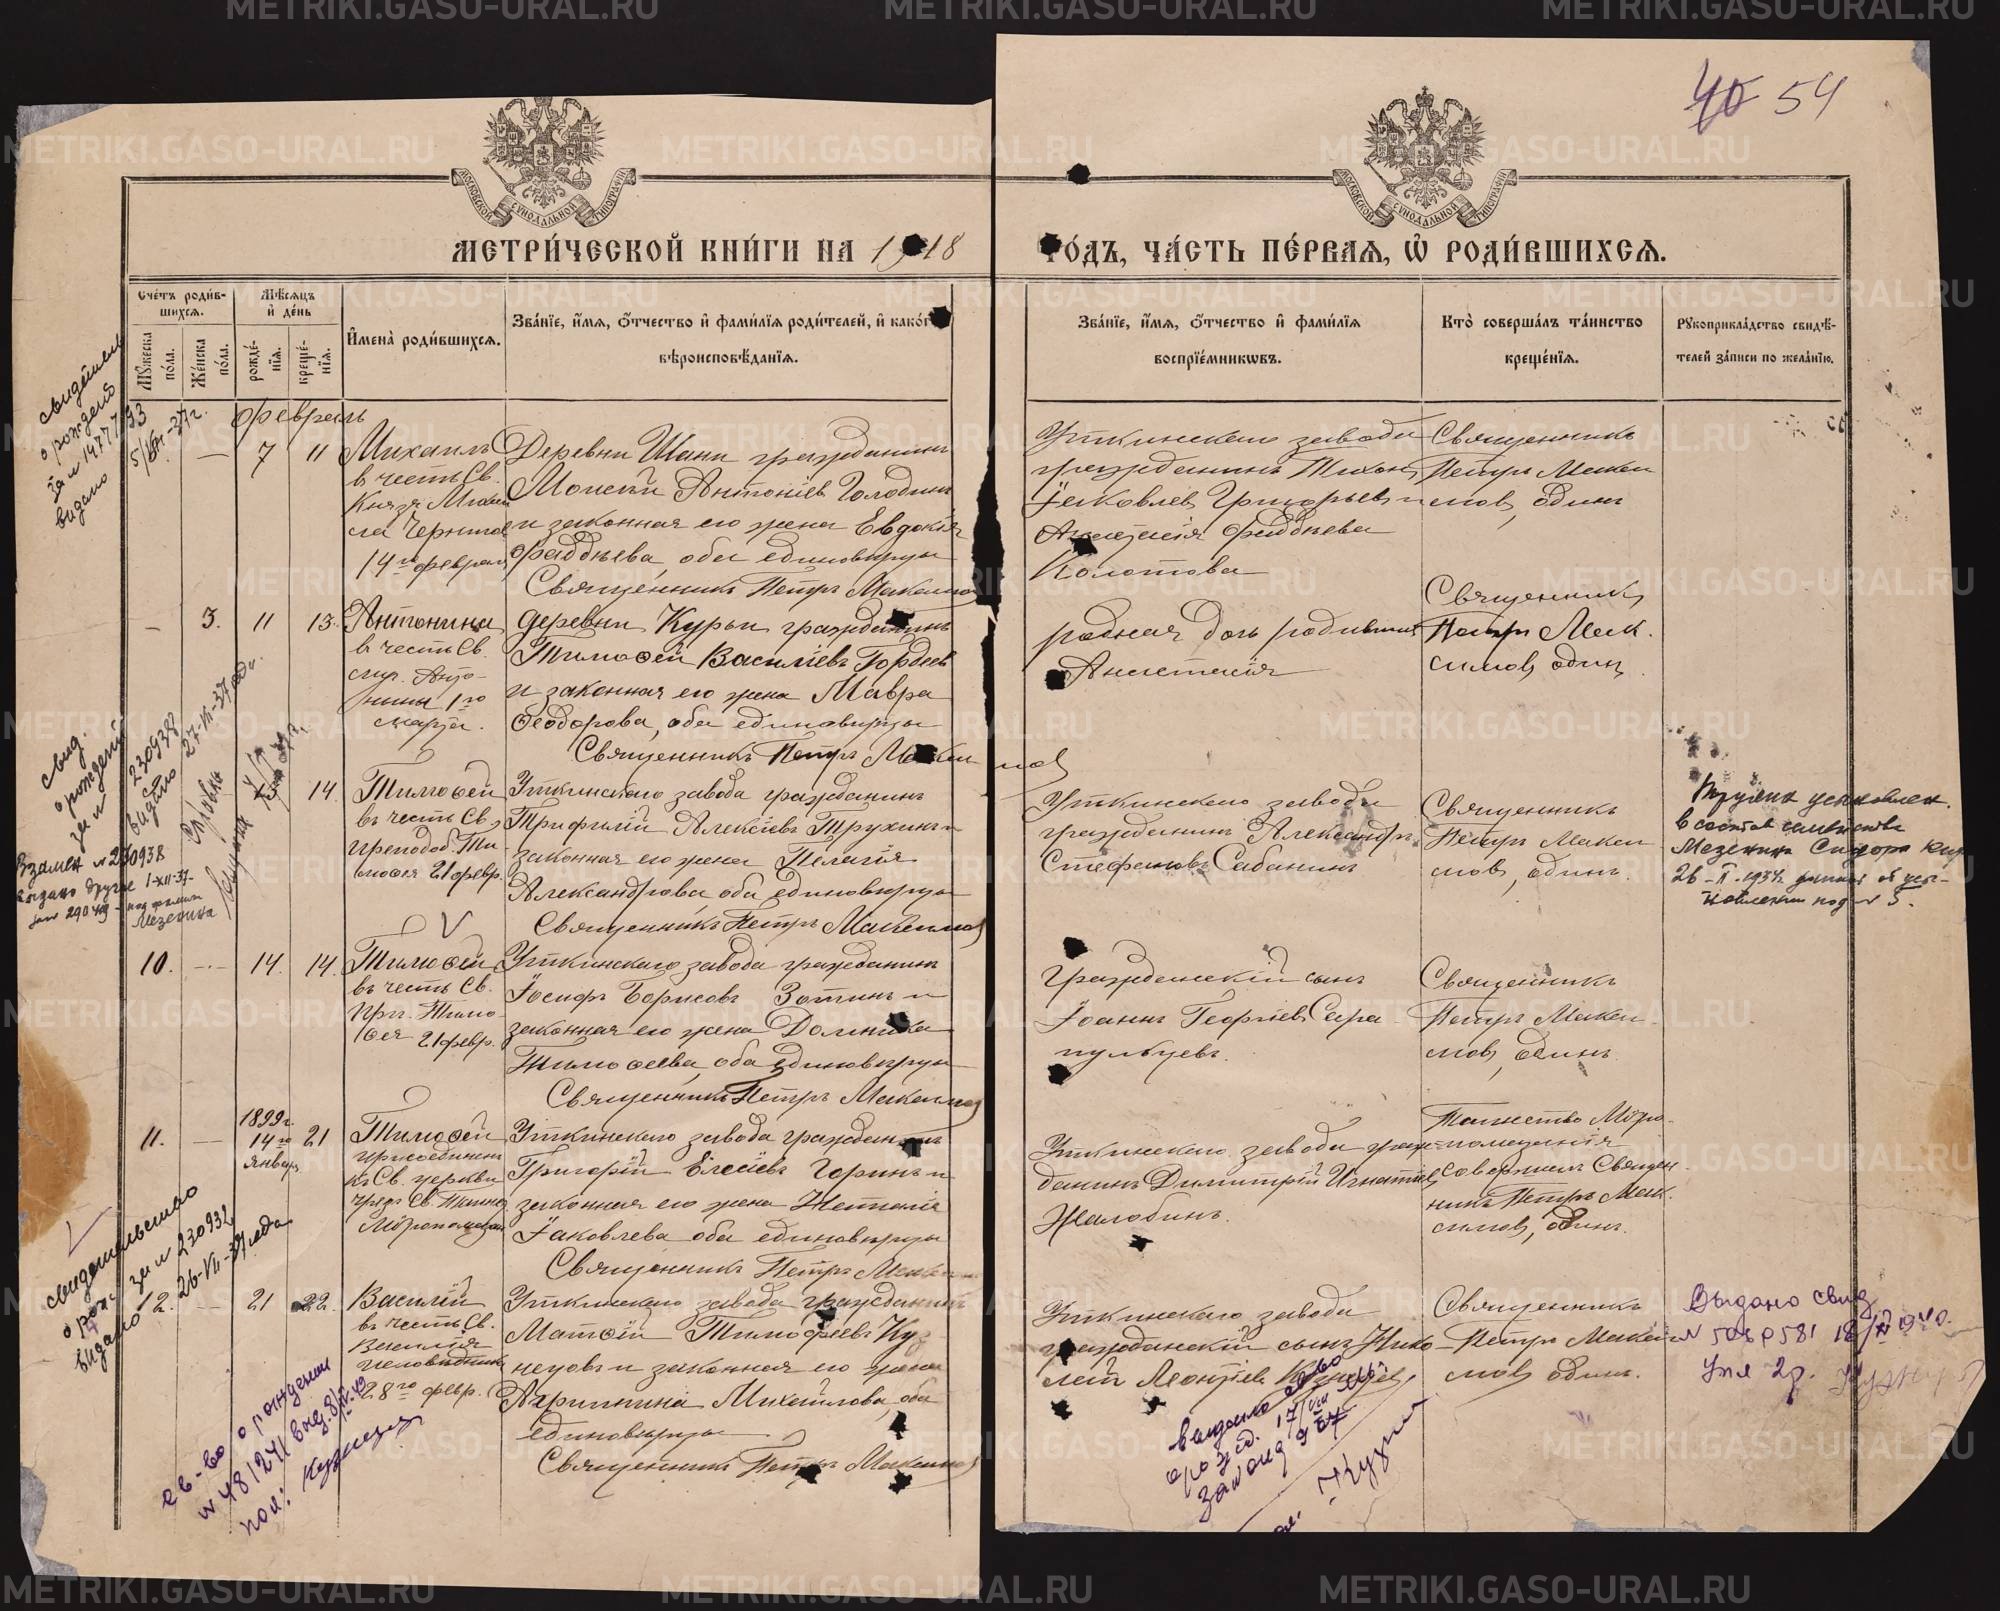 40 54
МЕТРИ́ЧЕСКОЙ КНИ́ГИ НА 1918
ГО́ДЪ, ЧА́СТЬ ПЕ́РВАЯ, Ѡ҆ РОДИ́ВШИХСЯ.
Сче́тъ роди́в-
шихся.
Мꙋ́жеска
по́ла.
Же́нска
по́ла.
Мѣ́сяцъ
и҆ де́нь
рожде́-
нїя.
креще́-
нїя.
И҆мена̀ роди́вшихся.
Зва́нїе, и҆́мя, ѻ҆́тчество и҆ фами́лїя роди́телей, и҆ како́гѡ
вѣроисповѣ́данїя.
Зва́нїе, и҆́мя, ѻ҆́тчество и҆ фами́лїя
воспрїе́мникѡвъ.
Кто̀ соверша́лъ та́инство
креще́нїя.
Рꙋкоприкла́дство свидѣ́-
телей за́писи по жела́нїю.
февраль
— 7 11
Михаилъ
в честь Св.
Князя Михаи
ла Чернигов
14го февраля
Деревни Шани гражданинъ
Моисей Антонiевъ Голодинъ
и законная его жена Евдокiя
Фаддѣева, оба единовѣрцы
Священникъ Петръ Максимов
Уткинскаго завода
гражданинъ Тихон
Iаковлев Григорьев и
Анастасiя Фаддѣева
Колотова
Священникъ
Петръ Макси
мов, один
— 3. 11 13.
Антонина
в честь Св.
муч. Анто-
нины 1го
марта.
деревни Курьи гражданинъ
Тимоѳей Василiевъ Гордѣев
и законная его жена Мавра
Ѳеодорова, оба единовѣрцы
Священникъ Петръ Максимов
родная дочь родившихъ
Анастасiя
Священникъ
Петръ Мак.
симов, один
14.
Тимоѳей
въ честь Св.
Преподоб. Ти
моѳея 21 февр.
Уткинскаго завода гражданинъ
Трифилiй Алексiевъ Трухинъ и
законная его жена Пелагiя
Александрова оба единовѣрцы
Священникъ Петръ Максимов
Уткинскаго завода
гражданинъ Александръ
Стефановъ Сабанинъ
Священникъ
Петръ Макси
мов, один.
Трухина усыновлен.
в состав семейства
Мезенина Сидора
10. — 14. 14.
Тимоѳей
въ честь Св.
Прп. Тимо
ѳея 21 февр.
Уткинскаго завода гражданинъ
Iосифъ Борисовъ Зотинъ и
законная его жена Домника
Тимоѳеева, оба единовѣрцы
Священникъ Петръ Максимов
гражданскiй сынъ
Iоаннъ Георгiев Сара
пульцевъ.
Священникъ
Петръ Макси
мов, один.
11. — 1899г.
14го
Январ. 21
Тимоѳей
присоединен
къ Св. церкви
чрез Св. Таинст
Мѵропомазан.
Уткинскаго завода гражданинъ
Григорiй Елесiевъ Горинъ и
законная его жена Наталiя
Iаковлева оба единовѣрцы
Священникъ Петръ Макси
Уткинскаго завода граж-
данинъ Димитрiй Игнатiев
Жалобинъ.
Таинство Мѵро-
помазанiя
совершилъ Священ-
никъ Петръ Мак.
симов, один.
2. — 21 22.
Василiй
въ честь Св.
Василiя
исповѣдника
28го февр.
Уткинскаго завода гражданинъ
Матѳей Тимофеевъ Куз
нецовъ и законная его жена
Агриппина Михайлова, оба
единовѣрцы
Священникъ Петръ Максимов
Уткинскаго завода
гражданскiй сынъ Нико
лай Леонтiев Кузнецов
Священникъ
Петръ Макси
мов один.
Выдано свид
свидетель
о рождено
за № 1477793
видано
свид.
о рождений
за №
230938
видано 27-VII-37 года
Справка
Взамен № 230938
выдано другое 1-XII-37-
Мезенина
свидетельство
о рож. за № 230932
видано 26-VII-37 года
св-во о рождении
№ 481241